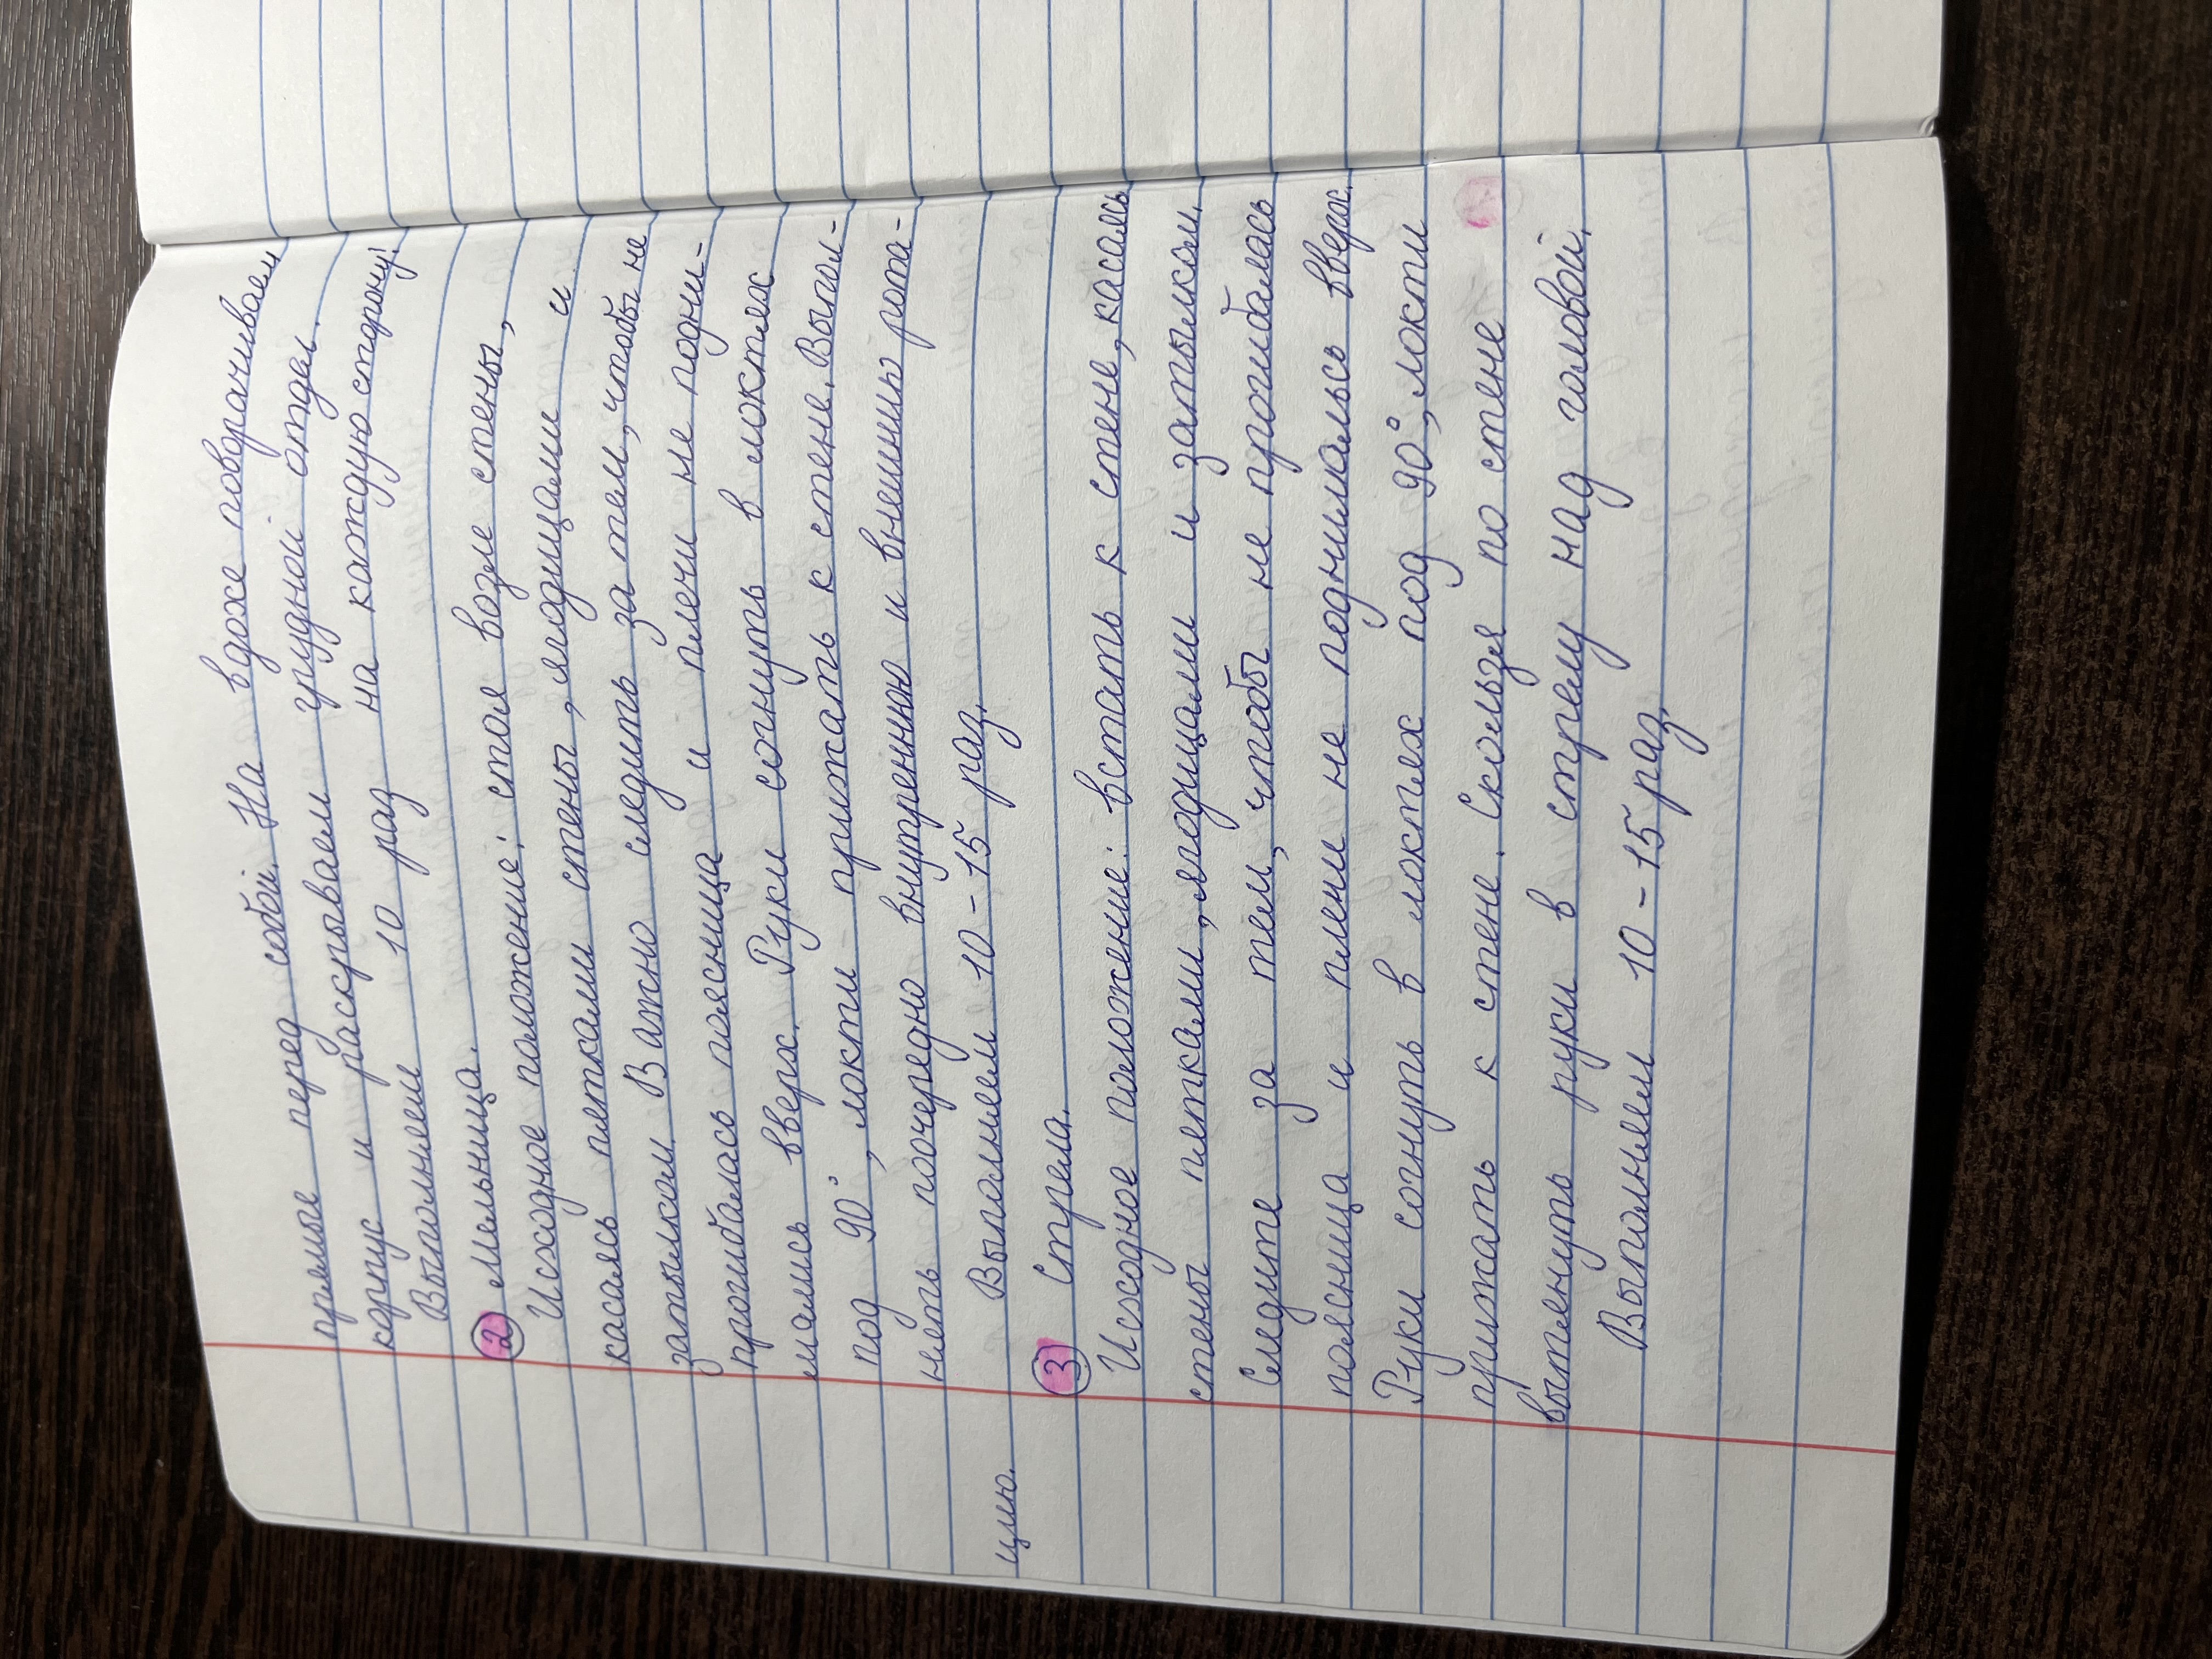 прямые перед собой. На вдохе поворачиваем
корпус и раскрываем грудной отдел.
Выполняем 10 раз на каждую сторону!
2 Мельница.
Исходное положение: стоя возле стены,
касаясь пятками стены, ягодицами и
затылком. Важно следить за тем, чтобы не
прогибалась поясница и плечи не подни-
мались вверх. Руки согнуть в локтях
под 90°, локти прижать к стене. Выпол-
нять поочередно внутреннюю и внешнюю рота-
цию. Выполняем 10-15 раз.
3 Стрела.
Исходное положение: встать к стене, касаясь
стены пятками, ягодицами и затылком.
Следите за тем, чтобы не прогибалась
поясница и плечи не поднимались вверх.
Руки согнуть в локтях под 90°, локти
прижать к стене. Скользя по стене
вытянуть руки в стрелу над головой.
Выполняем 10-15 раз.